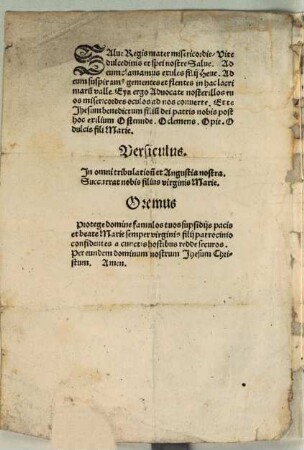 SAlue Regis mater misericordie Vite
dulcedinis et spei nostre Salue. Ad
Eum clamamus exules filij heue. Ad
eum suspiramꝰ gementes et flentes in hac lacri
marū valle. Eya ergo Aduocate noster illos tu
os misericordes oculos ad nos conuerte. Et te
Jhesum benedictum filiū dei patris nobis post
hoc exilium Ostende. O clemens. O pie. O
dulcis fili Marie.
Versiculus.
In omni tribulatiōn et Angustia nostra.
Succurrat nobis filius virginis Marie.
Oremus
Protege domine famulos tuos supsidijs pacis
et beate Marie semper virginis filij patrocinio
confidentes a cunctis hostibus redde securos.
Per eundem dominum nostrum Jhesum Chri-
stum. Amen.